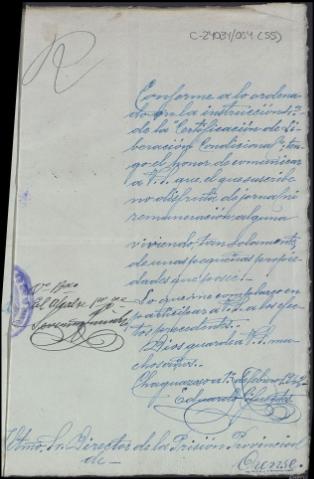 C-24031/004 (55)
R
Conforme a lo ordena
do en la instrucción 3ª
de la "Certificación de Li
beración Condicional", ten
go el honor de comunicar
a V.S. que el que suscribe
no disfruta de jornal ni
remuneración alguna
viviendo, tan solamente
de unas pequeñas propie
dades que posee.
Lo que me complazco en
participar a V.S. a los efec
tos procedentes.
Dios guarde a V.S. mu
chos años.
Vº Bno
Eduardo
Iltmo. Sr. Director de la Prisión Provincial
de—
Orense.